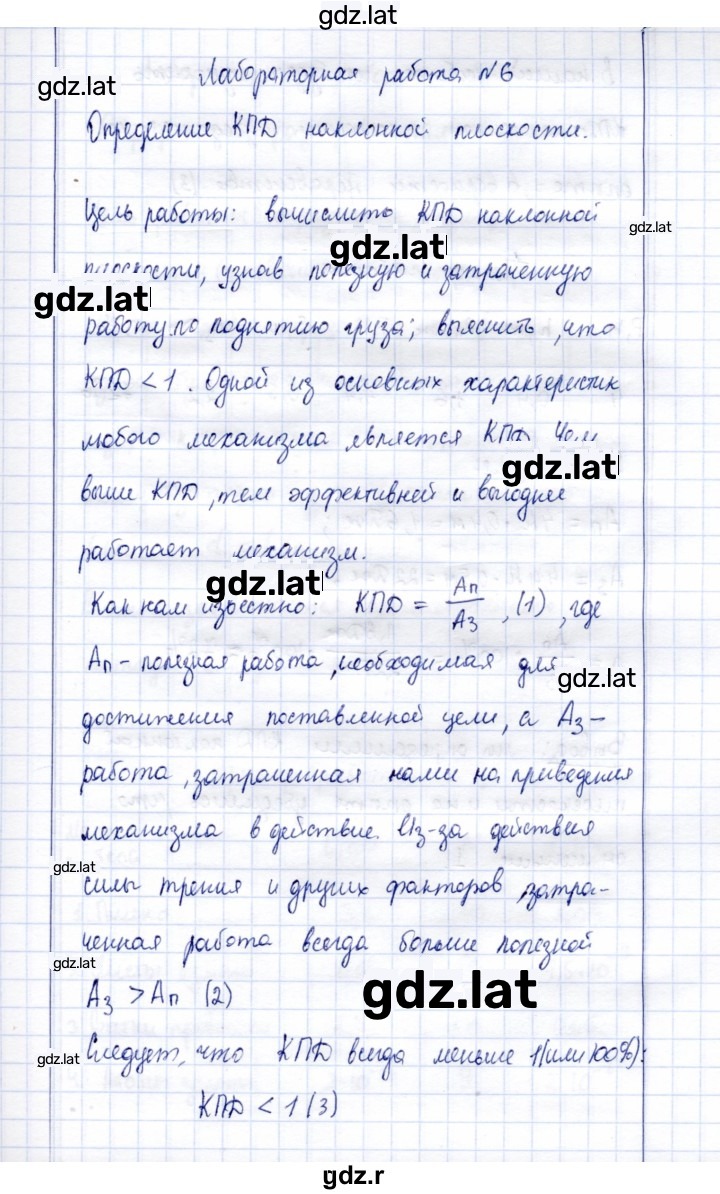 gdz.lat
gdz.lat
Лабораторная работа №6
Определение КПД наклонной плоскости.
Цель работы: вычислить КПД наклонной
gdz.lat
gdz.lat
плоскости, узнав полезную и затраченную
gdz.lat
работу по поднятию груза; выяснить, что
КПД < 1. Одной из основных характеристик
любого механизма является КПД
gdz.lat
выше КПД, тем эффективней и выгоднее
работает механизм.
gdz.lat
Как нам известно: КПД = Aп/Aз, (1), где
Aп - полезная работа, необходимая для
gdz.lat
достижения поставленной цели, а Aз -
работа, затраченная нами на приведения
механизма в действие. Из-за действия
gdz.lat
силы трения и других факторов, затра-
ченная работа всегда больше полезной
gdz.lat
Aз > Aп (2)
gdz.lat
Следует, что КПД всегда меньше 1 (или 100%):
gdz.lat
КПД < 1 (3)
gdz.r